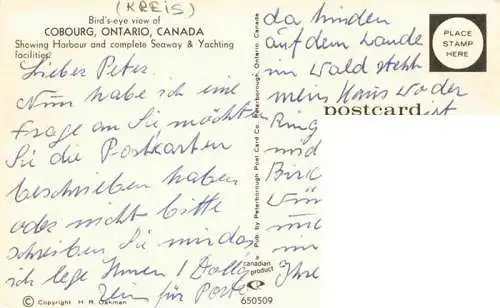 (KREIS)
Bird's-eye view of
COBOURG, ONTARIO, CANADA
Showing Harbour and complete Seaway & Yachting
facilities.
Lieber Peter.
Nun habe ich eine
Frage an Sie möchte
Sie die Postkarten
beschrieben haben
oder nicht bitte
schreiben Sie mir das
ich lege Ihnen 1 Dollar
ein für Porto
© Copyright H. R. Oakman
Pub. by Peterborough Post Card Co. Peterborough, Ontario, Canada
canadian
product
650509
da hinden
auf dem Lande
im Wald steht
mein Haus wo der
Ring
und
im
Ihre
PLACE
STAMP
HERE
postcard
ist